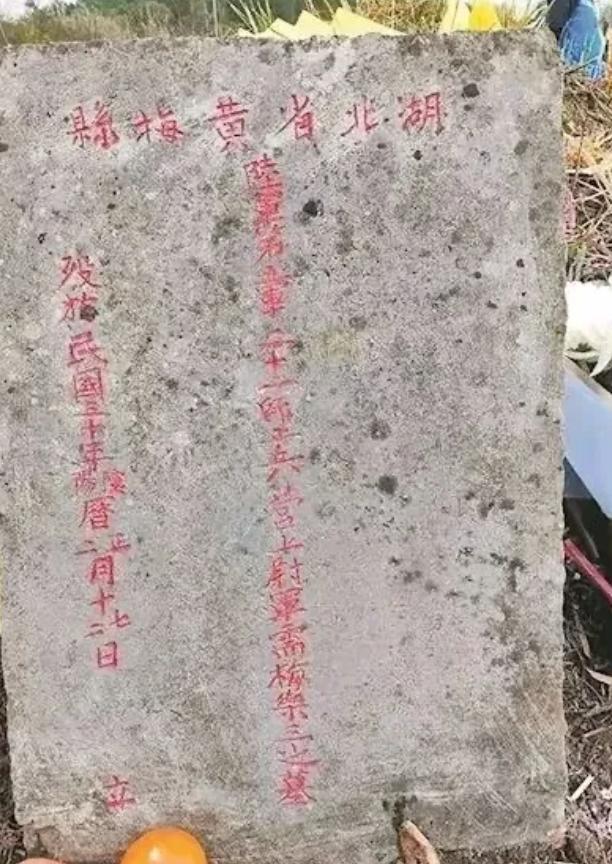 湖北省黄梅縣
陸軍第軍十一師工兵營上尉軍需梅樂三之墓
殁於民國三十年廢陽曆正二月十七二日 立